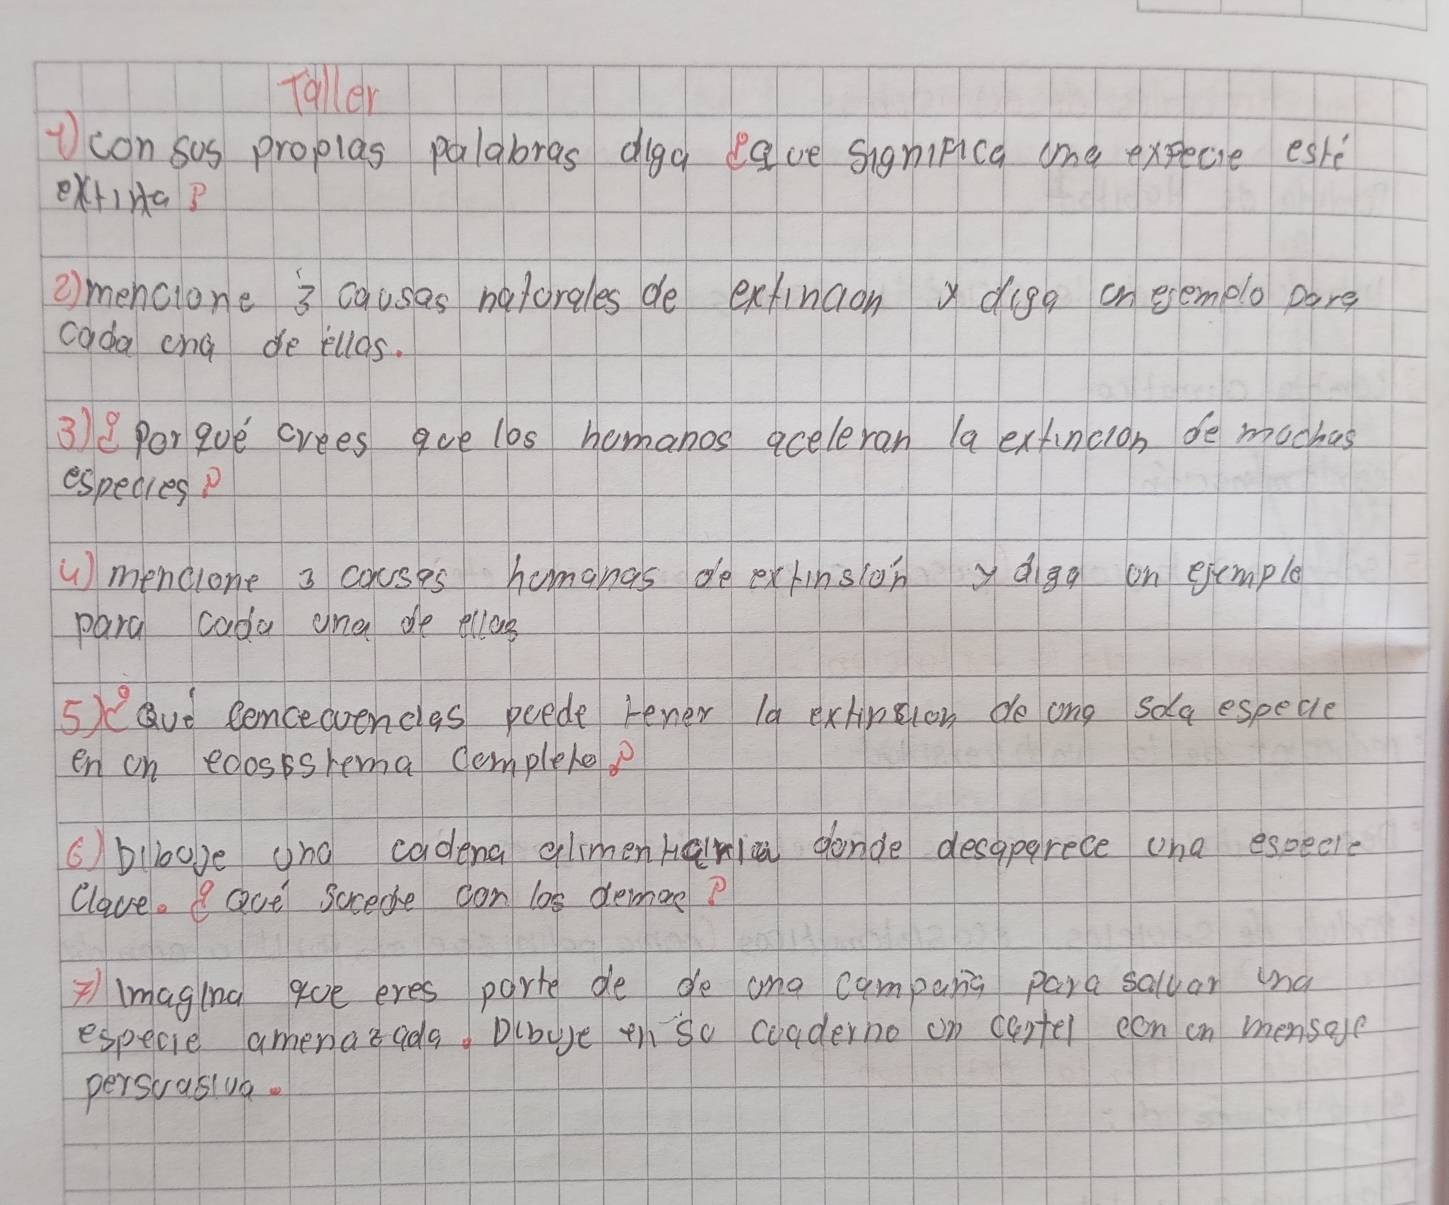 Taller
1) con sus propias palabras diga ¿que significa una expecie esté
extinta?
2) mencione 3 causas naturales de extincion y diga un ejemplo para
cada una de ellas.
3) ¿Por qué crees que los humanos aceleran la extincion de muchas
especies?
4) mencione 3 causas humanas de extinsión y diga un ejemplo
para cada una de ellas
5) ¿Qué concecuencias puede tener la extinsion de una sola especie
en un ecosistema completo?
6) Dibuje una cadena alimentaria donde desaparece una especie
clave. ¿Qué sucede con los demas?
7) imagina que eres parte de de una campaña para salvar una
especie amenazada. Dibuje en su cuaderno un cartel con un mensaje
persuasiva.